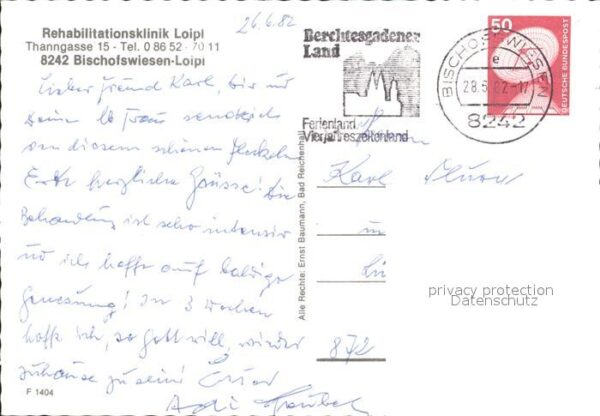 Rehabilitationsklinik Loipl
Thanngasse 15 - Tel. 0 86 52 - 70 11
8242 Bischofswiesen-Loipl
26.6.82
Berchtesgadener
Land
Ferienland
Vierjahreszeitenland
BISCHOFSWIESEN
e
28.6.82-17
8242
50
DEUTSCHE BUNDESPOST
Lieber Freund Karl, Dir und
Deine lb Frau sende ich
von diesem schönen Fleckchen
Erde herzliche Grüsse! Die
Behandlung ist sehr intensiv
und ich hoffe auf baldige
Genesung! In 3 Wochen
hoffe ich, so Gott will, wieder
zuhause zu sein! Euer
Adi
Karl
872
Alle Rechte: Ernst Baumann, Bad Reichenhall
privacy protection
Datenschutz
F 1404